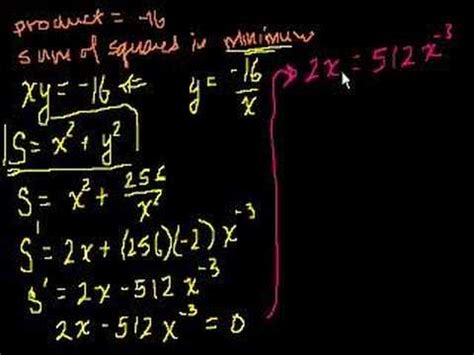 product = -16
sum of squares is minimum
xy = -16 ⇐
y = -16/x
S = x² + y²
S = x² + 256/x²
S' = 2x + (256)(-2)x⁻³
S' = 2x - 512x⁻³
2x - 512x⁻³ = 0
2x = 512x⁻³